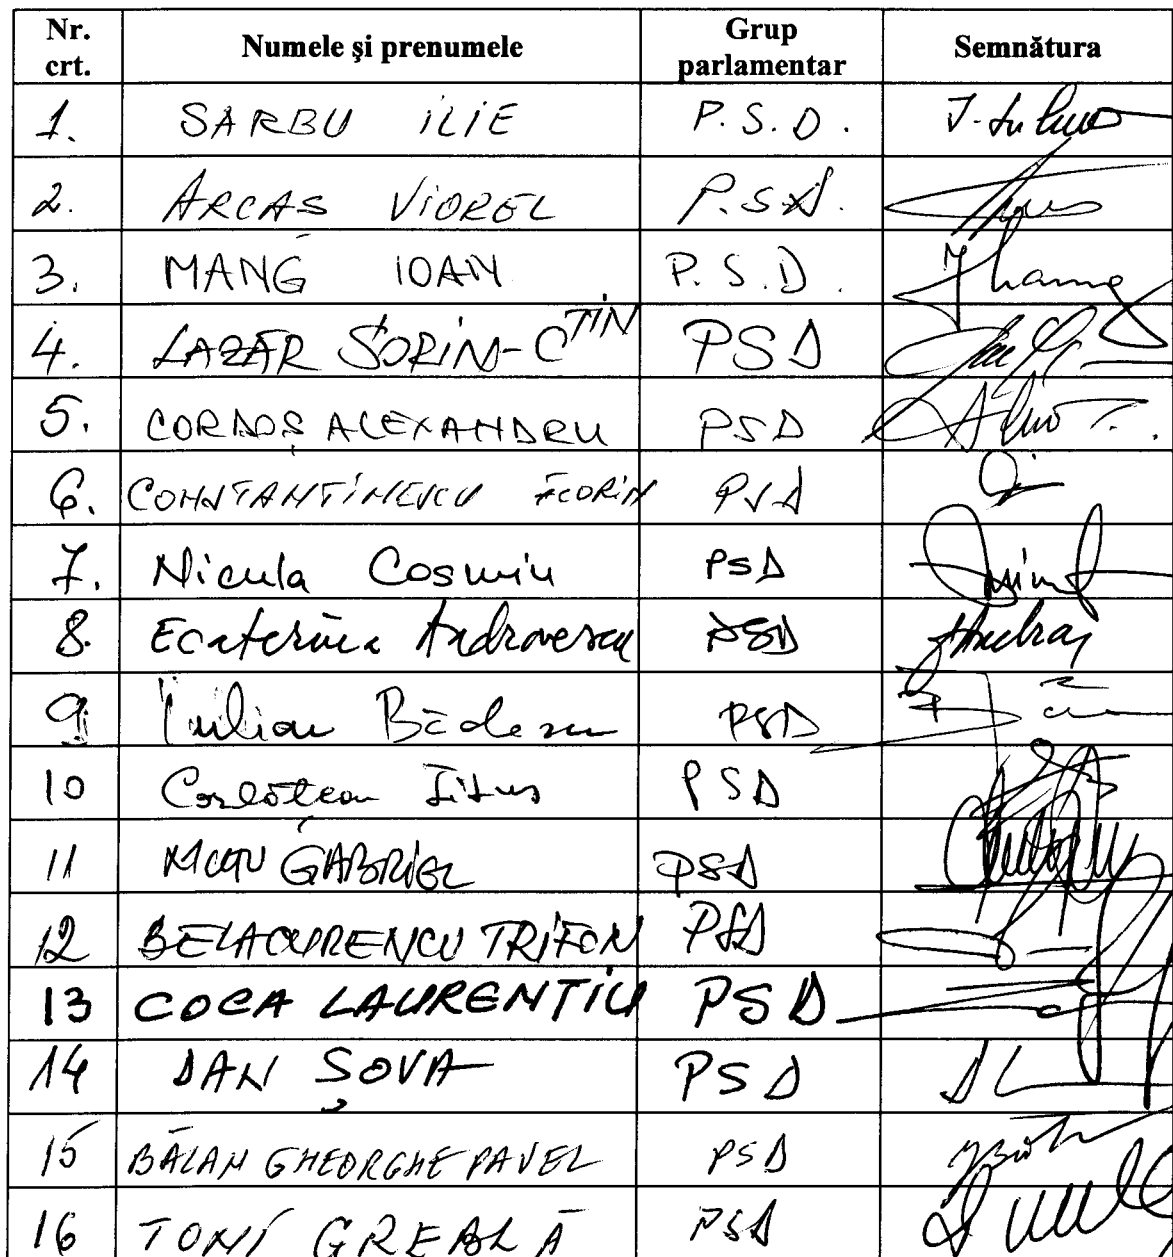 Nr. crt. Numele și prenumele Grup parlamentar Semnătura
1. SARBU ILIE P.S.D.
2. ARCAȘ VIOREL P.S.D.
3. MANG IOAN P.S.D.
4. LAZĂR SORIN-CTIN PSD
5. CORDOȘ ALEXANDRU PSD
6. CONSTANTINESCU FLORIN PSD
7. Nicula Cosmin PSD
8. Ecaterina Andronescu PSD
9 Iulian Bădescu PSD
10 Corlățean Titus PSD
11 GABRIEL PSD
12 BELACURENCU TRIFON PSD
13 COCA LAURENȚIU PSD
14 DAN ȘOVA PSD
15 BĂLAN GHEORGHE PAVEL PSD
16 TONI GREBLĂ PSD